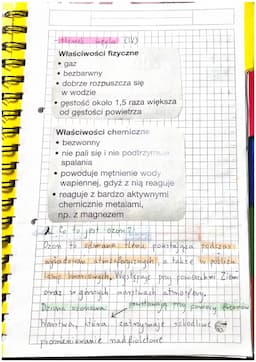 tlenek węgla (IV)
Właściwości fizyczne
• gaz
• bezbarwny
• dobrze rozpuszcza się
w wodzie
• gęstość około 1,5 raza większa
od gęstości powietrza
Właściwości chemiczne
• bezwonny
• nie pali się i nie podtrzymuje
spalania
• powoduje mętnienie wody
wapiennej, gdyż z nią reaguje
• reaguje z bardzo aktywnymi
chemicznie metalami,
np. z magnezem
2. Co to jest ozon?
Ozon to odmiana tlenu powstająca podczas
wyładowań atmosferycznych, a także w pobliżu
lamp kwarcowych. Występuje przy powierzchni Ziemi
oraz w górnych warstwach atmosfery.
Dziura ozonowa
powstająca przy pomocy freonów
Warstwa, która zatrzymuje szkodliwe
promieniowanie nadfioletowe